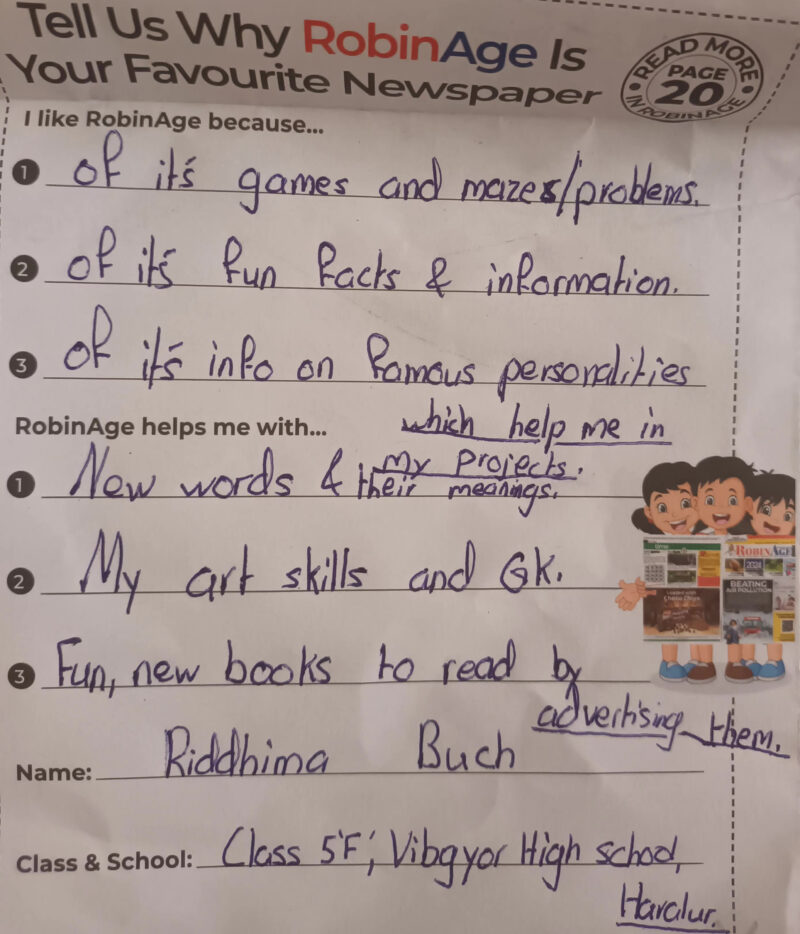 Tell Us Why RobinAge Is
Your Favourite Newspaper
READ MORE
PAGE
20
IN ROBINAGE
I like RobinAge because...
1 of it's games and mazes/problems.
2 of it's fun facts & information.
3 of it's info on famous personalities
which help me in
my projects.
RobinAge helps me with...
1 New words & their meanings.
2 My art skills and GK.
3 Fun, new books to read by
advertising them.
ROBINAGE
2024
BEATING
AIR POLLUTION
Name: Riddhima Buch
Class & School: Class 5'F', Vibgyor High school,
Haralur.